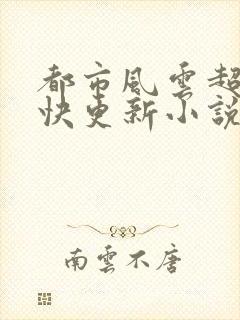 都市風雲超
快更新小說
南雲不唐